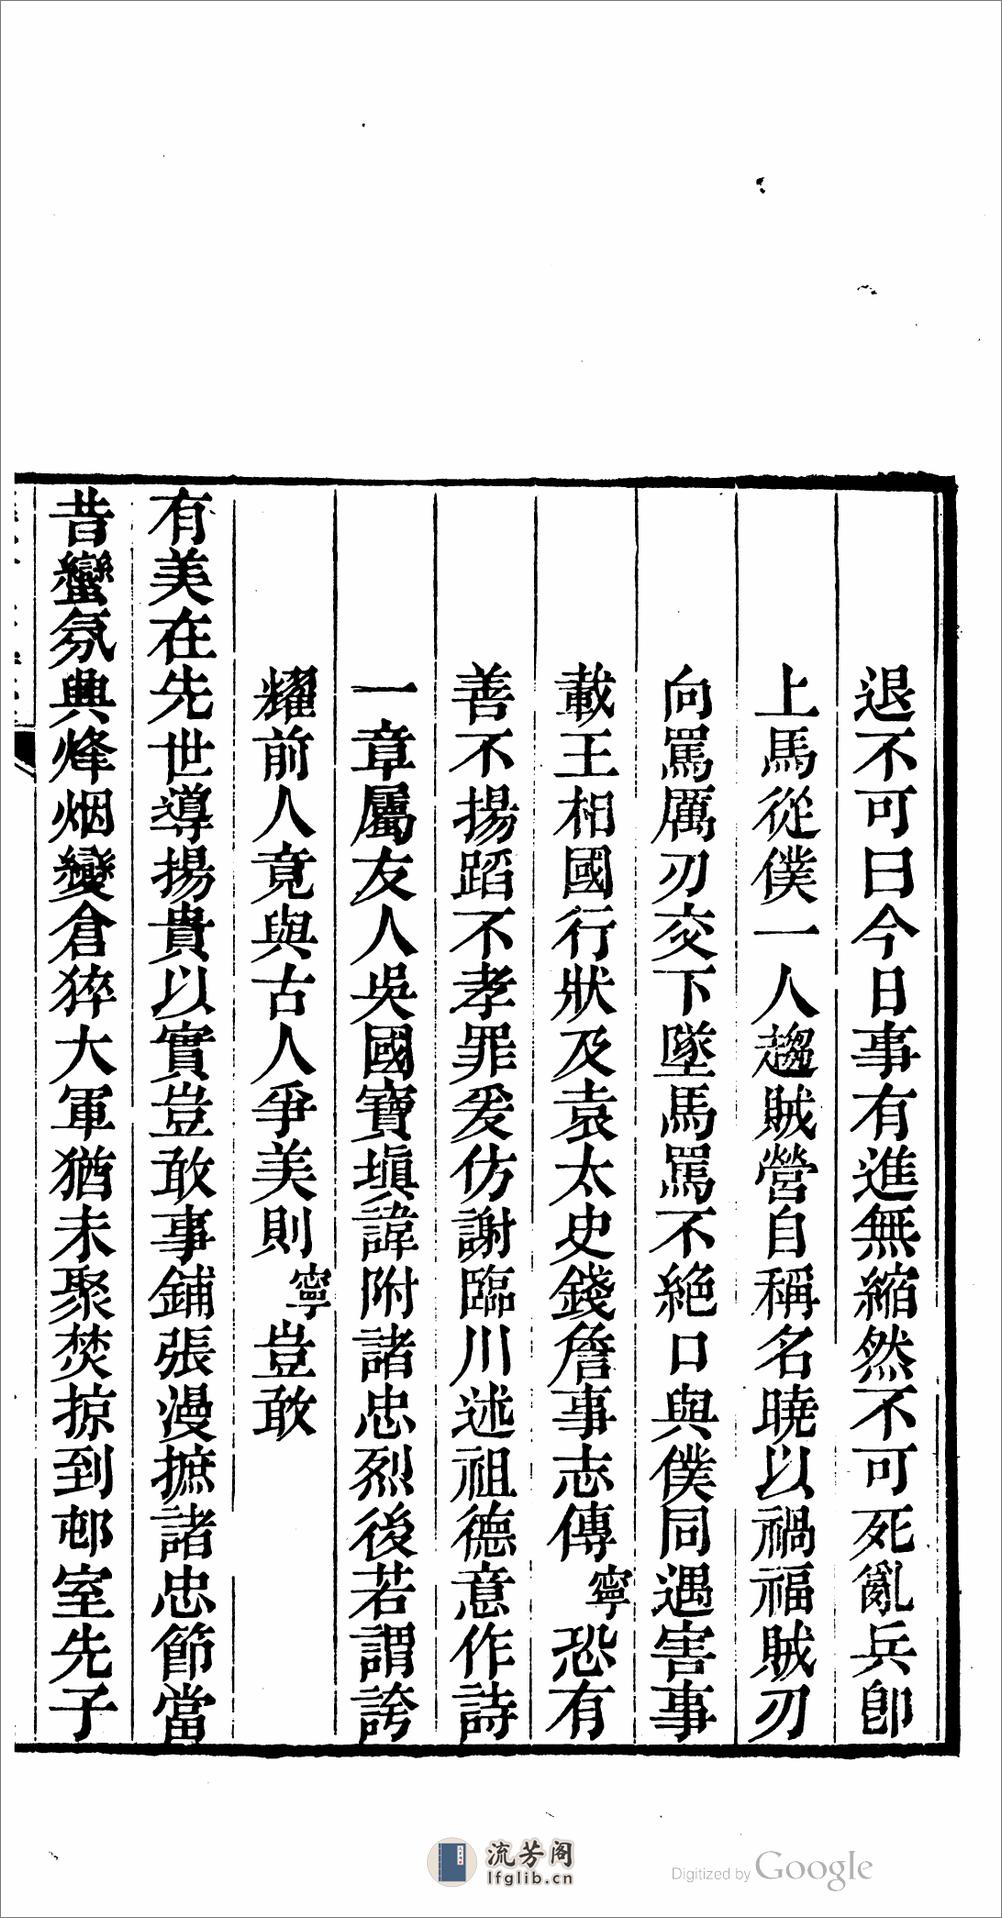 退不可曰今日事有進無縮然不可死亂兵卽
上馬從僕一人趨賊營自稱名曉以禍福賊刃
向罵厲刃交下墜馬罵不絕口與僕同遇害事
載王相國行狀及袁太史錢詹事志傳寧恐有
善不揚蹈不孝罪爰仿謝臨川述祖德意作詩
一章屬友人吳國寶塡諱附諸忠烈後若謂誇
耀前人竟與古人爭美則寧豈敢
有美在先世導揚貴以實豈敢事鋪張漫摭諸忠節當
昔蠻氛興烽烟變倉猝大軍猶未聚焚掠到邨室先子
流芳阁
lfglib.cn
Digitized by Google